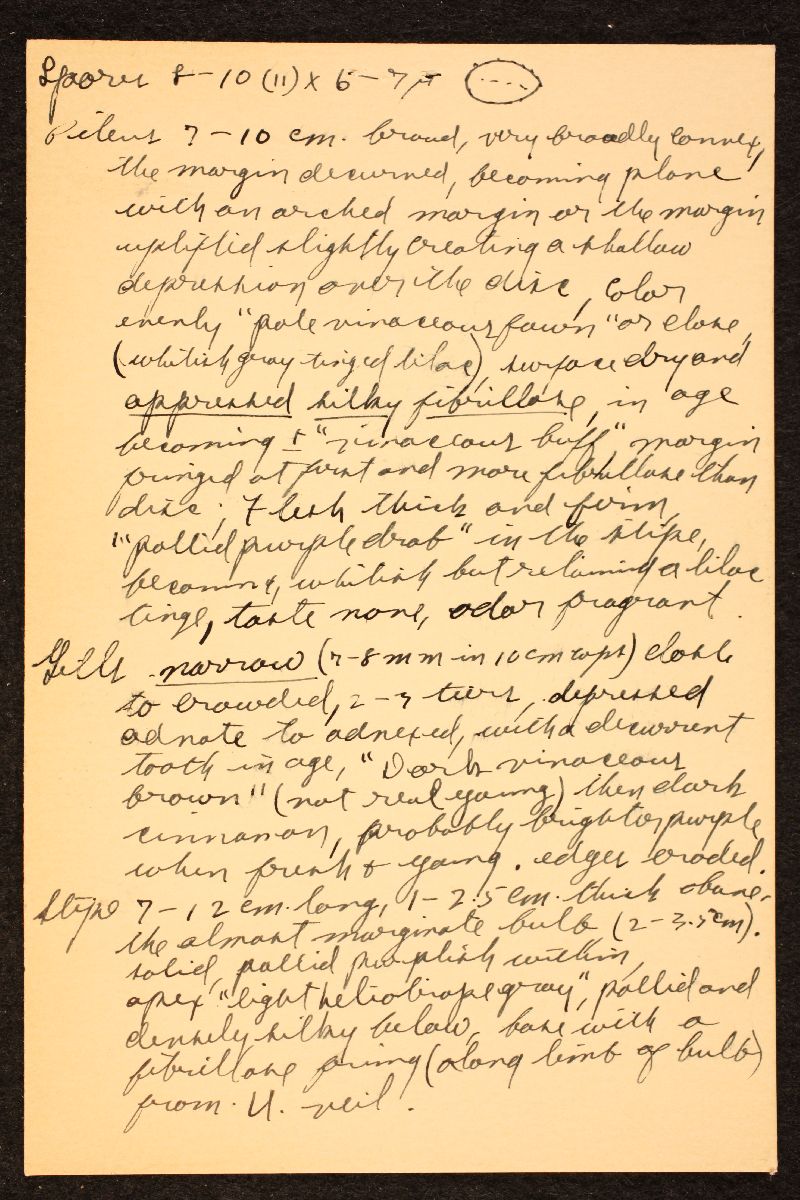 Spores 8–10 (11) x 6–7 µ
Pileus 7–10 cm. broad, very broadly convex,
the margin decurved, becoming plane
with an arched margin or the margin
uplifted slightly creating a shallow
depression over the disc, color
evenly "pale vinaceous fawn" or close,
(whitish gray tinged lilac) surface dry and
appressed silky fibrillose, in age
becoming ± "vinaceous buff" margin
fringed at first and more fibrillose than
disc; Flesh thick and firm,
"pallid purple drab" in the stipe,
becoming whitish but retaining a lilac
tinge, taste none, odor fragrant.
Gills narrow (7-8 mm in 10 cm caps) close
to crowded, 2–3 tiers, depressed
adnate to adnexed, with a decurrent
tooth in age, "Dark vinaceous
brown" (not real young) then dark
cinnamon, probably brighter purple
when fresh & young. edges eroded.
Stipe 7–12 cm. long, 1–2.5 cm. thick above
the almost marginate bulb (2–3.5 cm).
solid, pallid purplish within,
apex "light heliotrope gray", pallid and
densely silky below, base with a
fibrillose fring (along limb of bulb)
from U. veil.